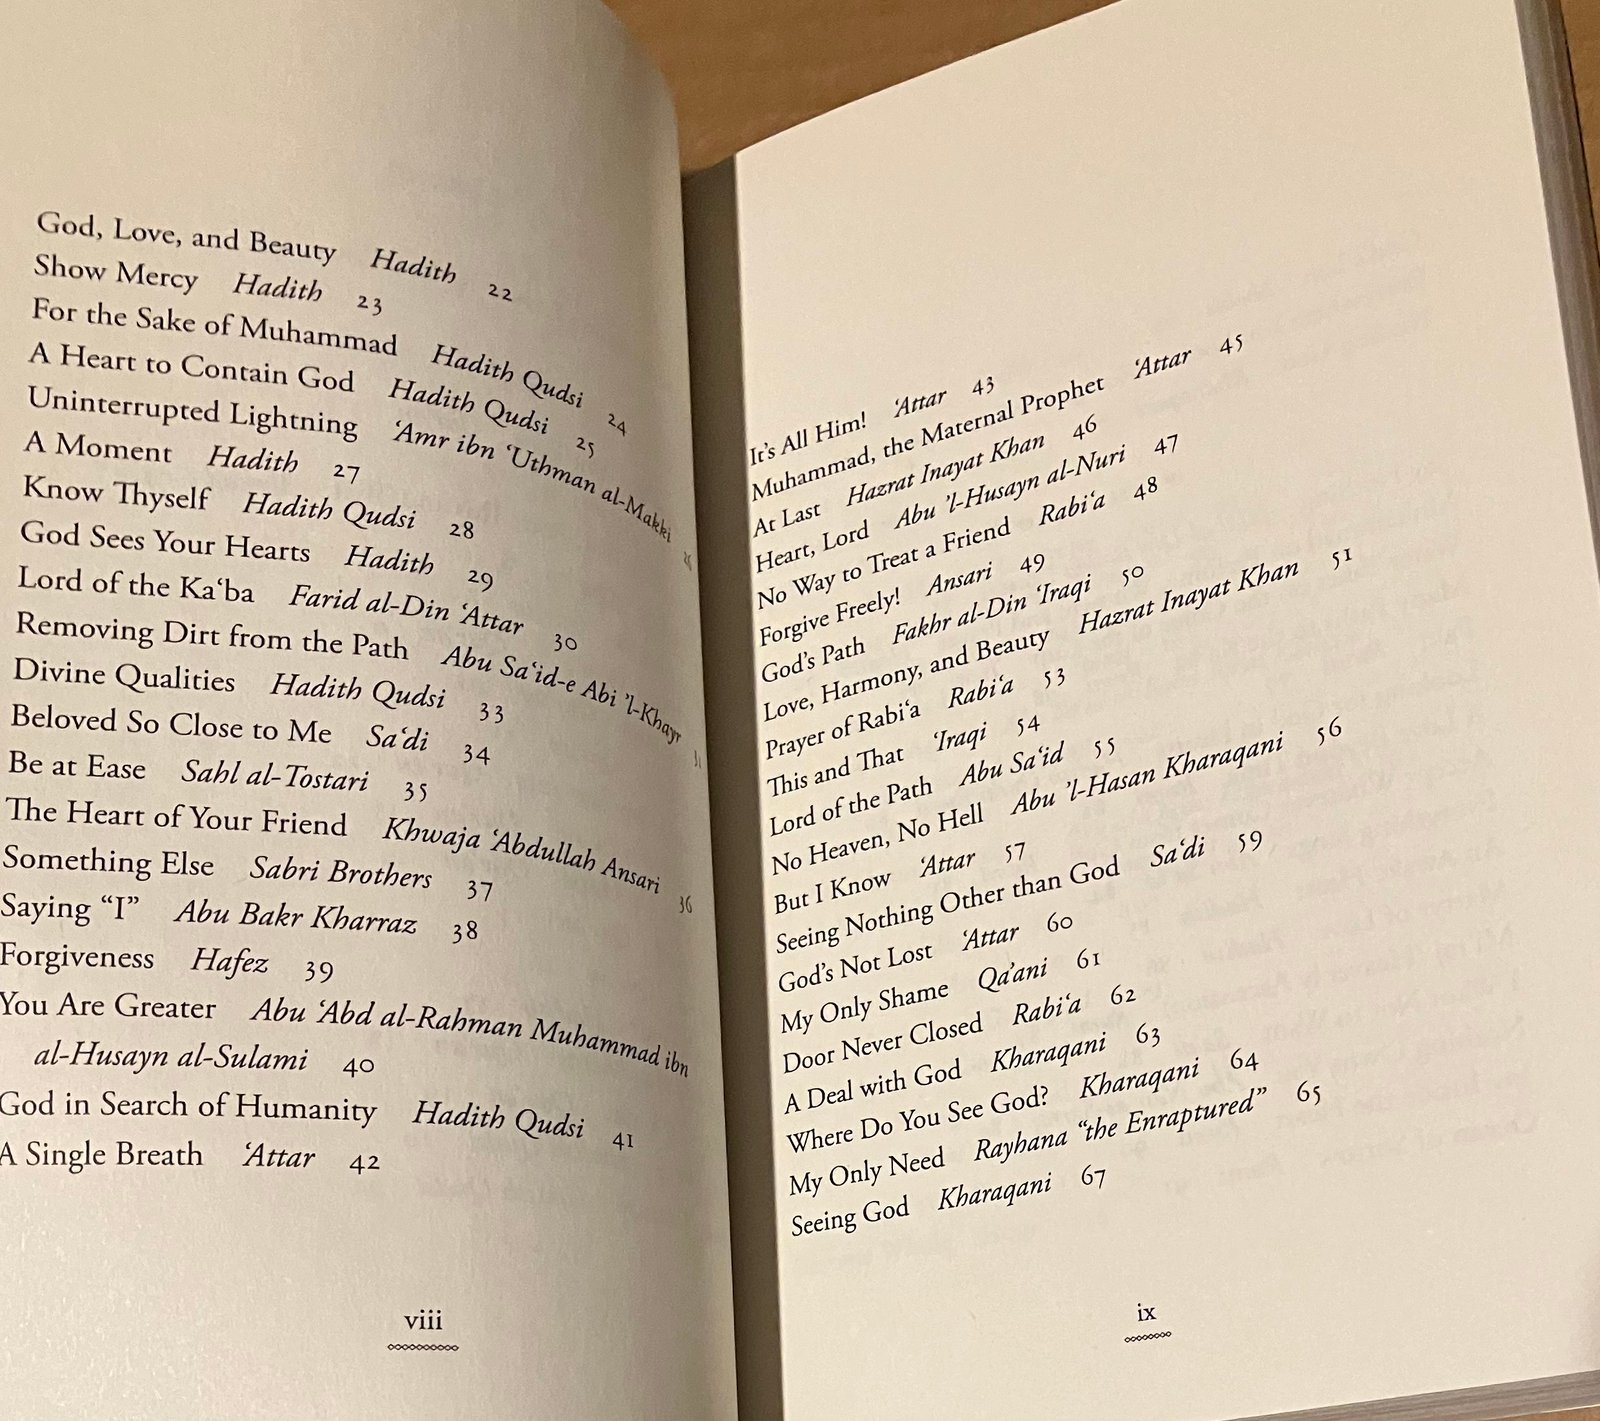 God, Love, and Beauty Hadith 22
Show Mercy Hadith 23
For the Sake of Muhammad Hadith Qudsi 24
A Heart to Contain God Hadith Qudsi 25
Uninterrupted Lightning ‘Amr ibn ‘Uthman al-Makki 26
A Moment Hadith 27
Know Thyself Hadith Qudsi 28
God Sees Your Hearts Hadith 29
Lord of the Ka‘ba Farid al-Din ‘Attar 30
Removing Dirt from the Path Abu Sa‘id-e Abi ’l-Khayr 31
Divine Qualities Hadith Qudsi 33
Beloved So Close to Me Sa‘di 34
Be at Ease Sahl al-Tostari 35
The Heart of Your Friend Khwaja ‘Abdullah Ansari 36
Something Else Sabri Brothers 37
Saying “I” Abu Bakr Kharraz 38
Forgiveness Hafez 39
You Are Greater Abu ‘Abd al-Rahman Muhammad ibn
al-Husayn al-Sulami 40
God in Search of Humanity Hadith Qudsi 41
A Single Breath ‘Attar 42
viii
It’s All Him! ‘Attar 43
Muhammad, the Maternal Prophet ‘Attar 45
At Last Hazrat Inayat Khan 46
Heart, Lord Abu ’l-Husayn al-Nuri 47
No Way to Treat a Friend Rabi‘a 48
Forgive Freely! Ansari 49
God’s Path Fakhr al-Din ‘Iraqi 50
Love, Harmony, and Beauty Hazrat Inayat Khan 51
Prayer of Rabi‘a Rabi‘a 53
This and That ‘Iraqi 54
Lord of the Path Abu Sa‘id 55
No Heaven, No Hell Abu ’l-Hasan Kharaqani 56
But I Know ‘Attar 57
Seeing Nothing Other than God Sa‘di 59
God’s Not Lost ‘Attar 60
My Only Shame Qa’ani 61
Door Never Closed Rabi‘a 62
A Deal with God Kharaqani 63
Where Do You See God? Kharaqani 64
My Only Need Rayhana “the Enraptured” 65
Seeing God Kharaqani 67
ix